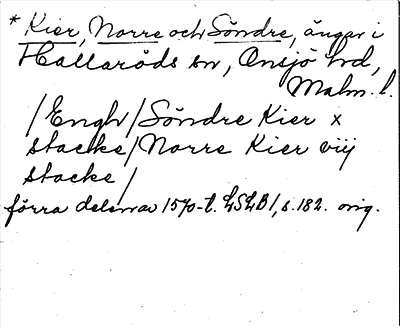 * Kier, Norre och Söndre, ängar i
Hallaröds sn, Onsjö hd,
Malm. l.
/Engh/Söndre Kier x
stacke/Norre Kier viij
stacke/
förra delen av 1570-t. LSLB1, s. 182. orig.